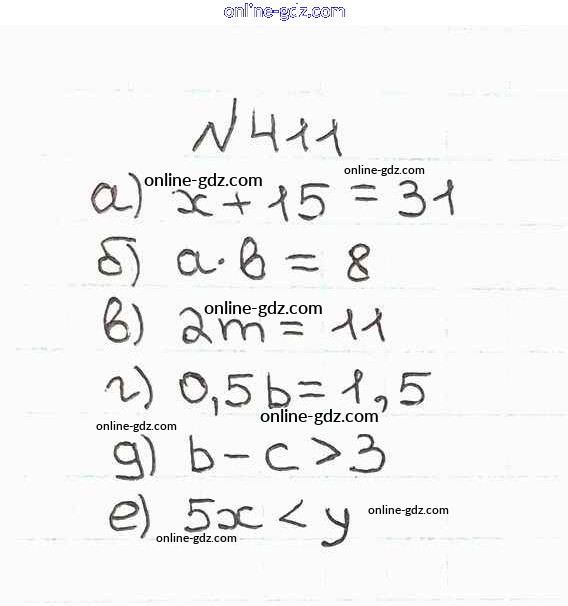 online-gdz.com
№411
online-gdz.com
online-gdz.com
а) x + 15 = 31
б) a · b = 8
online-gdz.com
в) 2m = 11
г) 0,5b = 1,5
online-gdz.com
online-gdz.com
д) b - c > 3
е) 5x < y
online-gdz.com
online-gdz.com